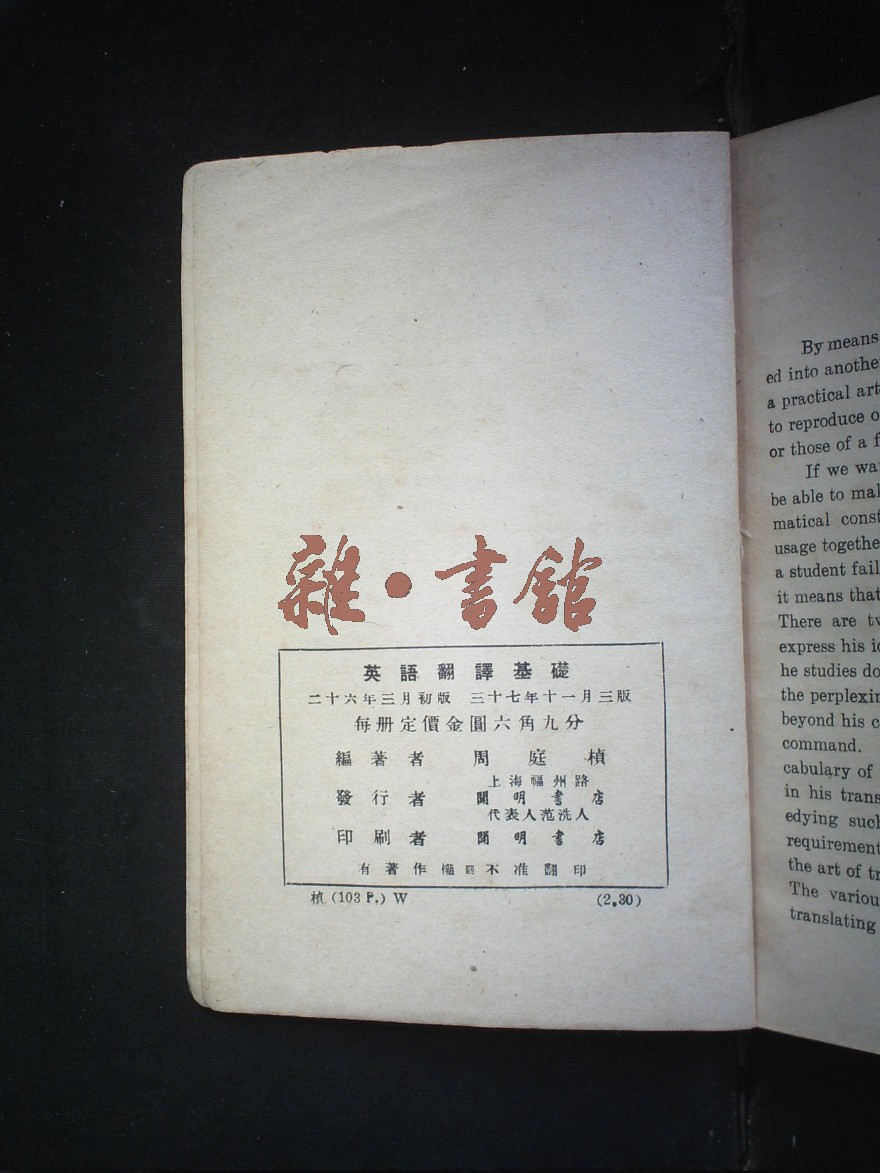 雜·書館
英語翻譯基礎
二十六年三月初版 三十七年十一月三版
每册定價金圓六角九分
編著者 周庭楨
上海福州路
發行者 開明書店
代表人范洗人
印刷者 開明書店
有著作權 不准翻印
楨(103 P.) W (2.30)
By means
ed into anothe
a practical art
to reproduce o
or those of a f
If we wa
be able to mal
matical const
usage togethe
a student fail
it means that
There are tv
express his ic
he studies do
the perplexin
beyond his c
command.
cabulary of
in his trans
edying such
requirement
the art of tr
The variou
translating